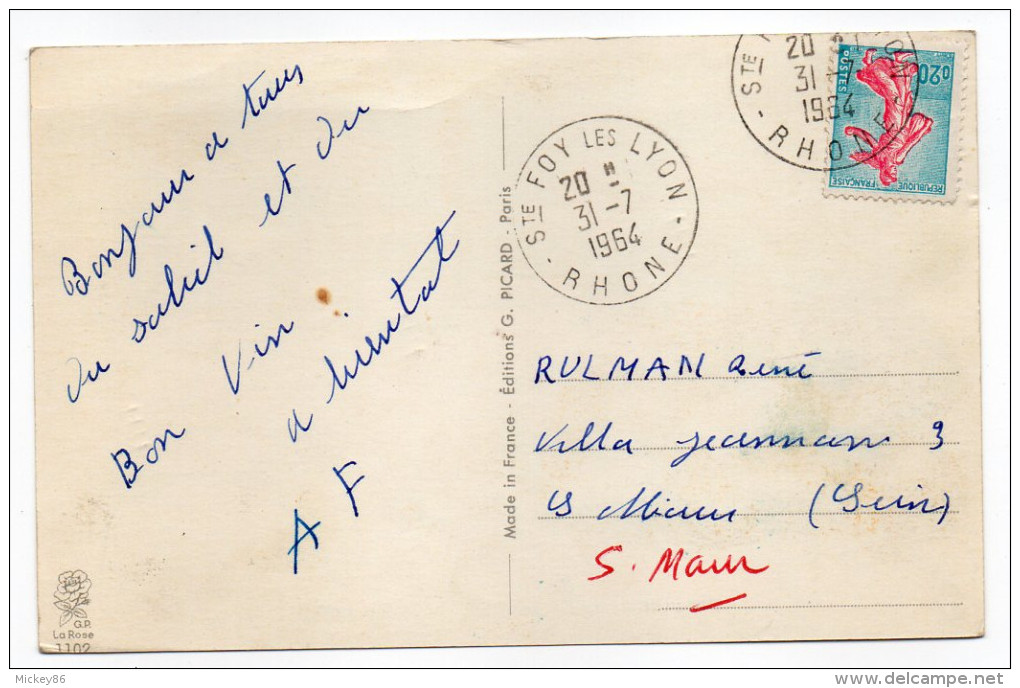 Bonjour a tous
du soleil et du
Bon Vin
a bientat
A F
G.P.
La Rose
1102
Made in France - Éditions G. PICARD - Paris
STE FOY LES LYON
20 H
31 -7
1964
- RHONE -
STE
LYON
20 H
31 -7
1964
- RHONE -
0,20
POSTES
REPUBLIQUE FRANÇAISE
RULMAN René
Villa 9
S (Sein)
S. Maur
Mickey86
delcampe.net